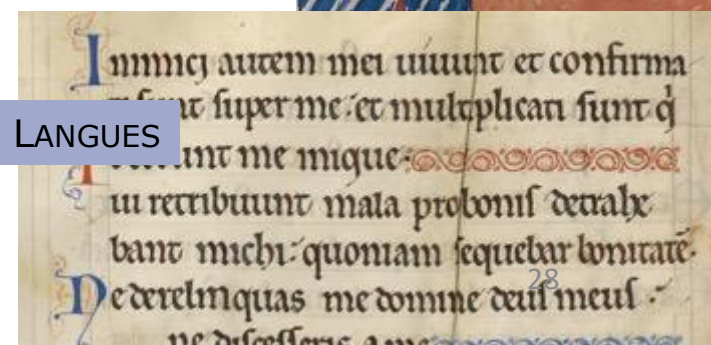 Inimici autem mei uiuunt et confirma
LANGUES
sunt super me: et multiplicati sunt q
unt me inique:
ui retribuunt mala pro bonis detrahe
bant michi: quoniam sequebar bonitatē.
28
Ne derelinquas me domine deus meus:
ne discesseris a me